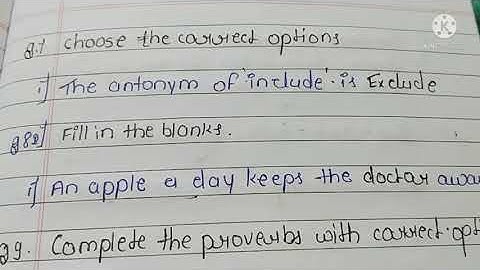 Q.7 Choose the carrect options
i) The antonym of 'include' is Exclude
Q 8) Fill in the blanks.
i) An apple a day keeps the doctar awa
Q9. Complete the proverbs with carrect opt